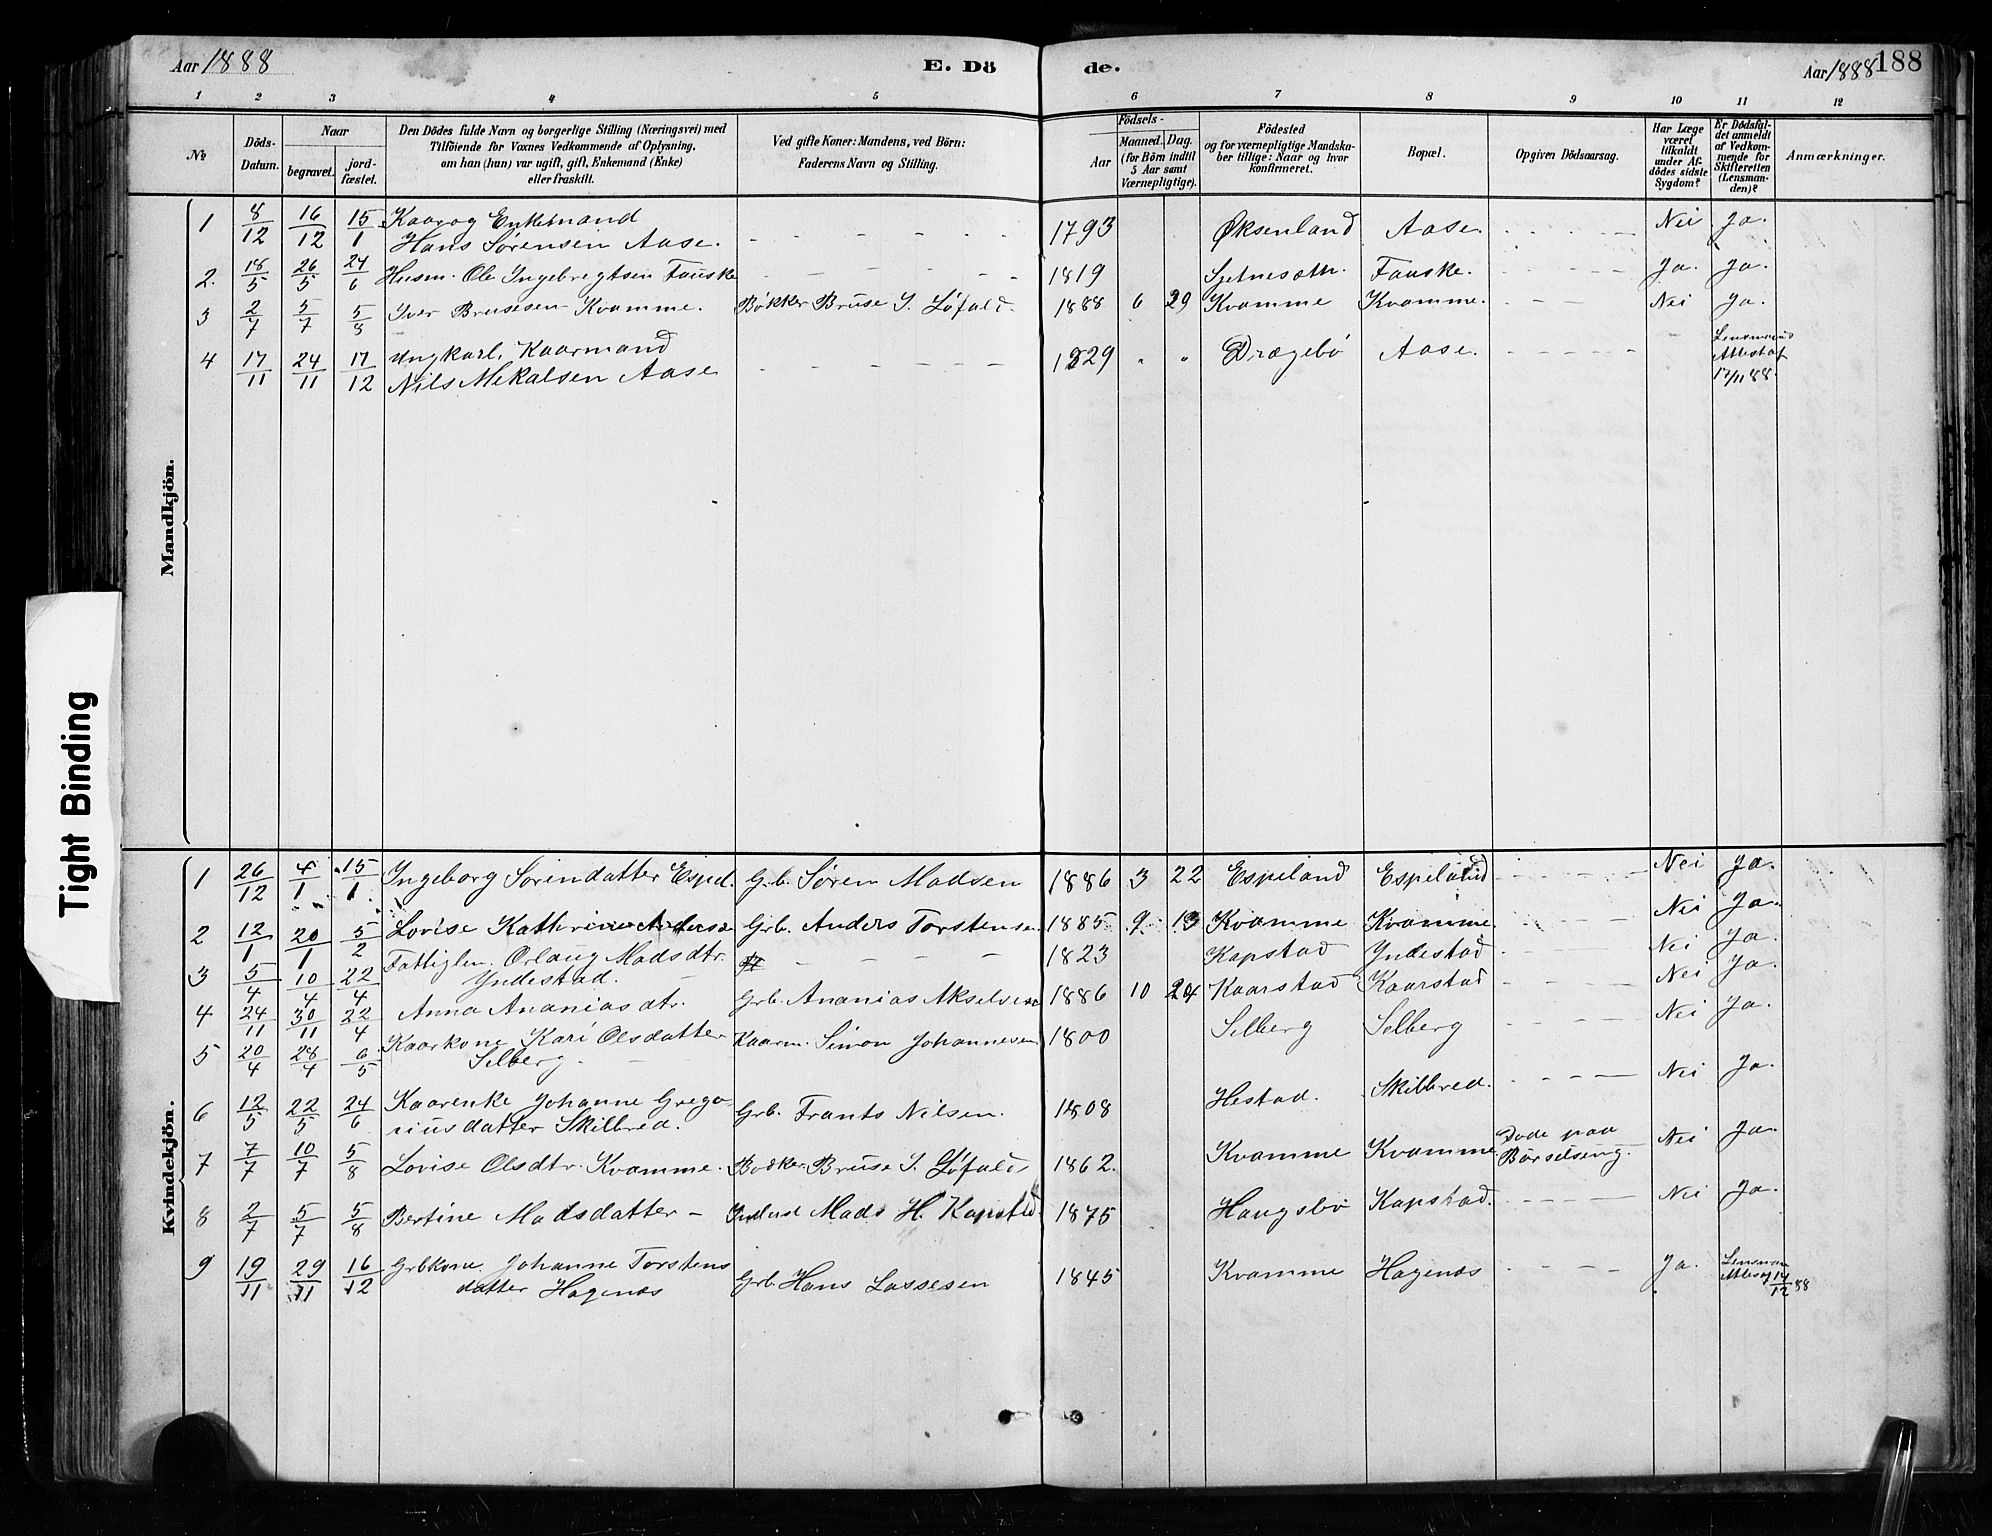 Aar 1888
E. Dö
de.
Aar 1888
188
1 2 3 4 5 6 7 8 9 10 11 12
№
Döds-Datum.
Naar
begravet.
jord-fæstet.
Den Dödes fulde Navn og borgerlige Stilling (Næringsvei) med
Tilföiende for Voxnes Vedkommende af Oplysning.
om han (hun) var ugift, gift, Enkemand (Enke)
eller fraskilt.
Ved gifte Koner: Mandens, ved Börn:
Faderens Navn og Stilling.
Födsels-
Aar
Maaned. Dag.
(for Börn indtil
5 Aar samt
Værnepligtige).
Födested
og for værnepligtige Mandska-
ber tillige: Naar og hvor
konfirmeret.
Bopæl.
Opgiven Dödsaarsag.
Har Læge
været
tilkaldt
under Af-
dödes sidste
Sygdom?
Er Dödsfal-
det anmeldt
af Vedkom-
mende for
Skifteretten
(Lensman-
den)?
Anmærkninger.
Mandkjön.
1 8/12 16/12 15/1 Kaar og Enkemand
Hans Sørensen Aase. - - - - - - 1793 Øksenland Aase. - - - - - Nei Ja.
2. 18/5 26/5 24/6 Husm. Ole Ingebregtsen Fauske - - - - - 1819 Fauske. - - - - Ja. Ja.
3 2/7 5/7 5/8 Iver Brusesen Kvamme. Bøkker Bruse S. Løfald. 1888 6 29 Kvamme Kvamme. - - - Nei Ja.
4 17/11 24/11 17/12 Ungkarl, Kaarmand
Nils Mekalsen Aase - - - - - - 1829 " " Drægebø Aase. - - - - - - Lensmands
Attest af
17/11 88.
Kvindekjön.
1 26/12 4/1 15/1 Ingeborg Sørendatter Espel. Grb. Søren Madsen 1886 3 22 Espeland Espeland - - - - Nei Ja.
2 12/1 20/1 5/2 Lovise Kathrine Grb. Anders Torstensen 1885. 9. 13 Kvamme Kvamme. - - - - Nei Ja.
3 5/4 10/4 22/4 Fattiglem. Orlaug Madsdtr.
Yndestad. - - - - 1823 Kapstad Yndestad - - - - Nei Ja.
4 24/11 30/11 22/4 Anna Ananiasdtr. Grb. Ananias Akselsen 1886 10 24 Kaarstad Kaarstad - - - - Nei Ja.
5 20/4 28/4 6/5 Kaarkone Kari Olsdatter
Selberg - Kaarm. Simon Johannesen 1800 Selberg Selberg - - - - Nei Ja.
6 12/5 22/5 24/6 Kaarenke Johanne Grego-
riusdatter Skilbred. Grb. Frants Nilsen. 1808 Hestad. Skilbred. - - - - Nei Ja.
7 7/7 10/7 5/8 Lovise Olsdtr. Kvamme. Bødker Bruse S. Løfald 1862. Kvamme Kvamme Døde paa
Barselseng. Nei Ja.
8 2/7 5/7 5/8 Bertine Madsdatter - Inderst Mads H. Kapstad. 1875 Haugsbø Kapstad. - - - - Nei Ja.
9 19/11 29/11 16/12 Grbkone Johanne Torstens
datter Hagenæs Grb. Hans Lassesen 1845 Kvamme Hagenæs - - - - Ja. Lensman
Attest af 14/12 88
Tight Binding